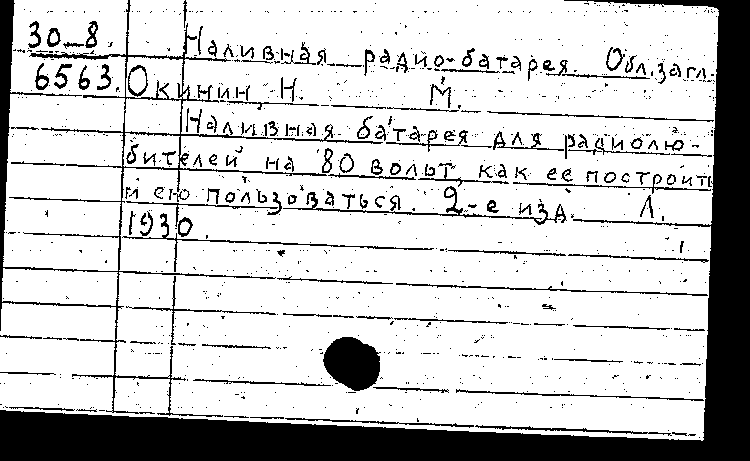 30-8. Наливная радио-батарея. Обл.загл.
6563. Окинин, Н. М.
Наливная батарея для радиолю-
бителей на 80 вольт, как ее построить
и ею пользоваться. 2-е изд. Л.
1930.